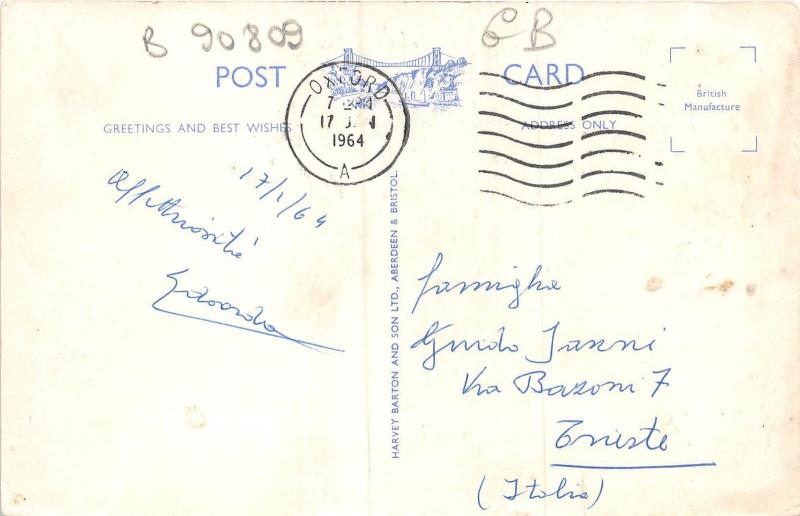 B 90809
GB
POST CARD
OXFORD
17 J N
1964
A
British
Manufacture
GREETINGS AND BEST WISHES
ADDRESS ONLY
17/1/64
Edoardo
HARVEY BARTON AND SON LTD., ABERDEEN & BRISTOL.
famiglia
Guido Janni
Via Bazoni 7
Trieste
(Italia)